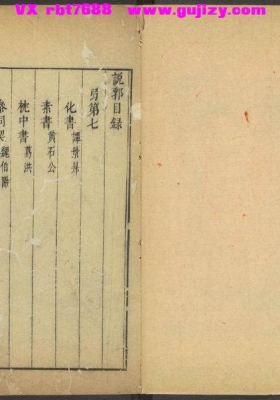 VX rbt7688 www.gujizy.com
說郛目録
弓第七
化書 譚景昇
素書 黃石公
枕中書 葛洪
參同契 魏伯陽